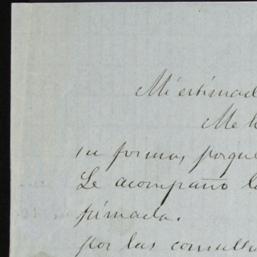 Mi estimad
Me h
su forma, porque
Le acompaño l
firmada.
por las consult